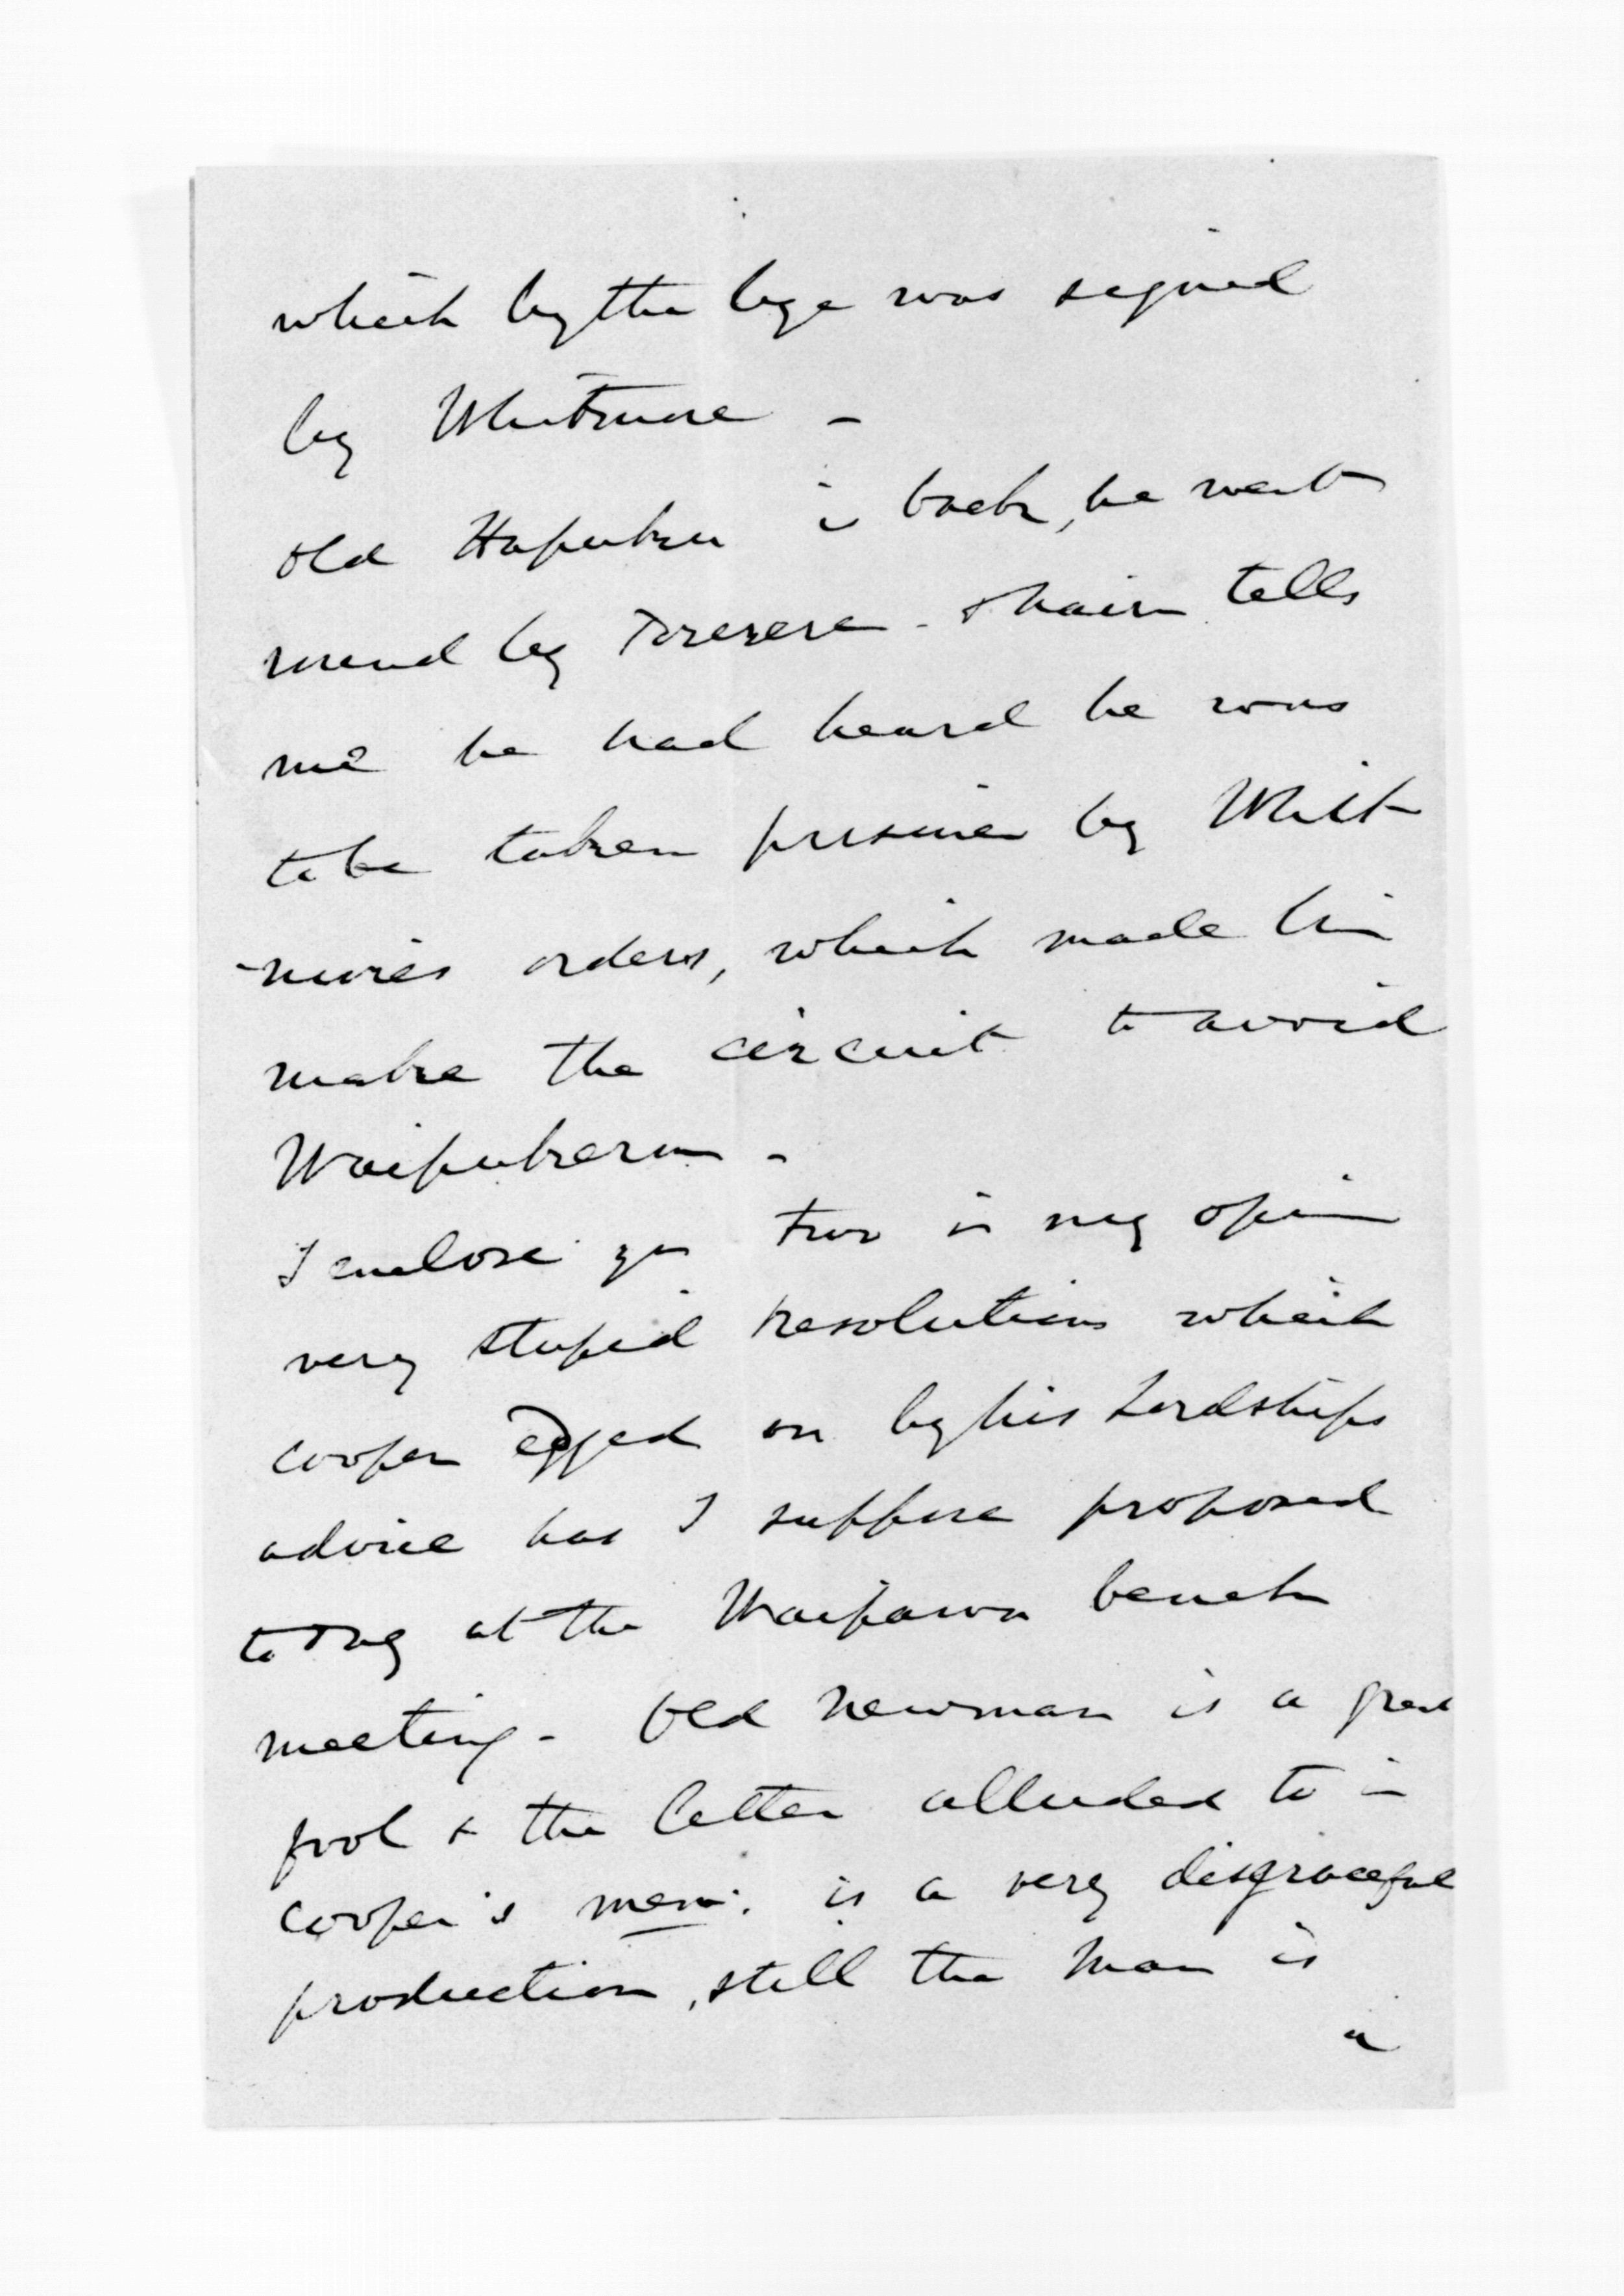 which by the bye was signed
by Whitmore -
old Hapuku is back, he went
round by Torere - & hair tells
me he had heard he was
to be taken prisoner by Whit
-more's orders, which made him
make the circuit to avoid
Waipukurau -
I enclose you two in my opin
very stupid resolutions which
Cooper egged on by his Lordships
advice has I suppose proposed
to at the Waipawa bench
meeting - Old Newman is a great
fool & the letter alluded to in
Cooper's mem: is a very disgraceful
production, still the man is
a